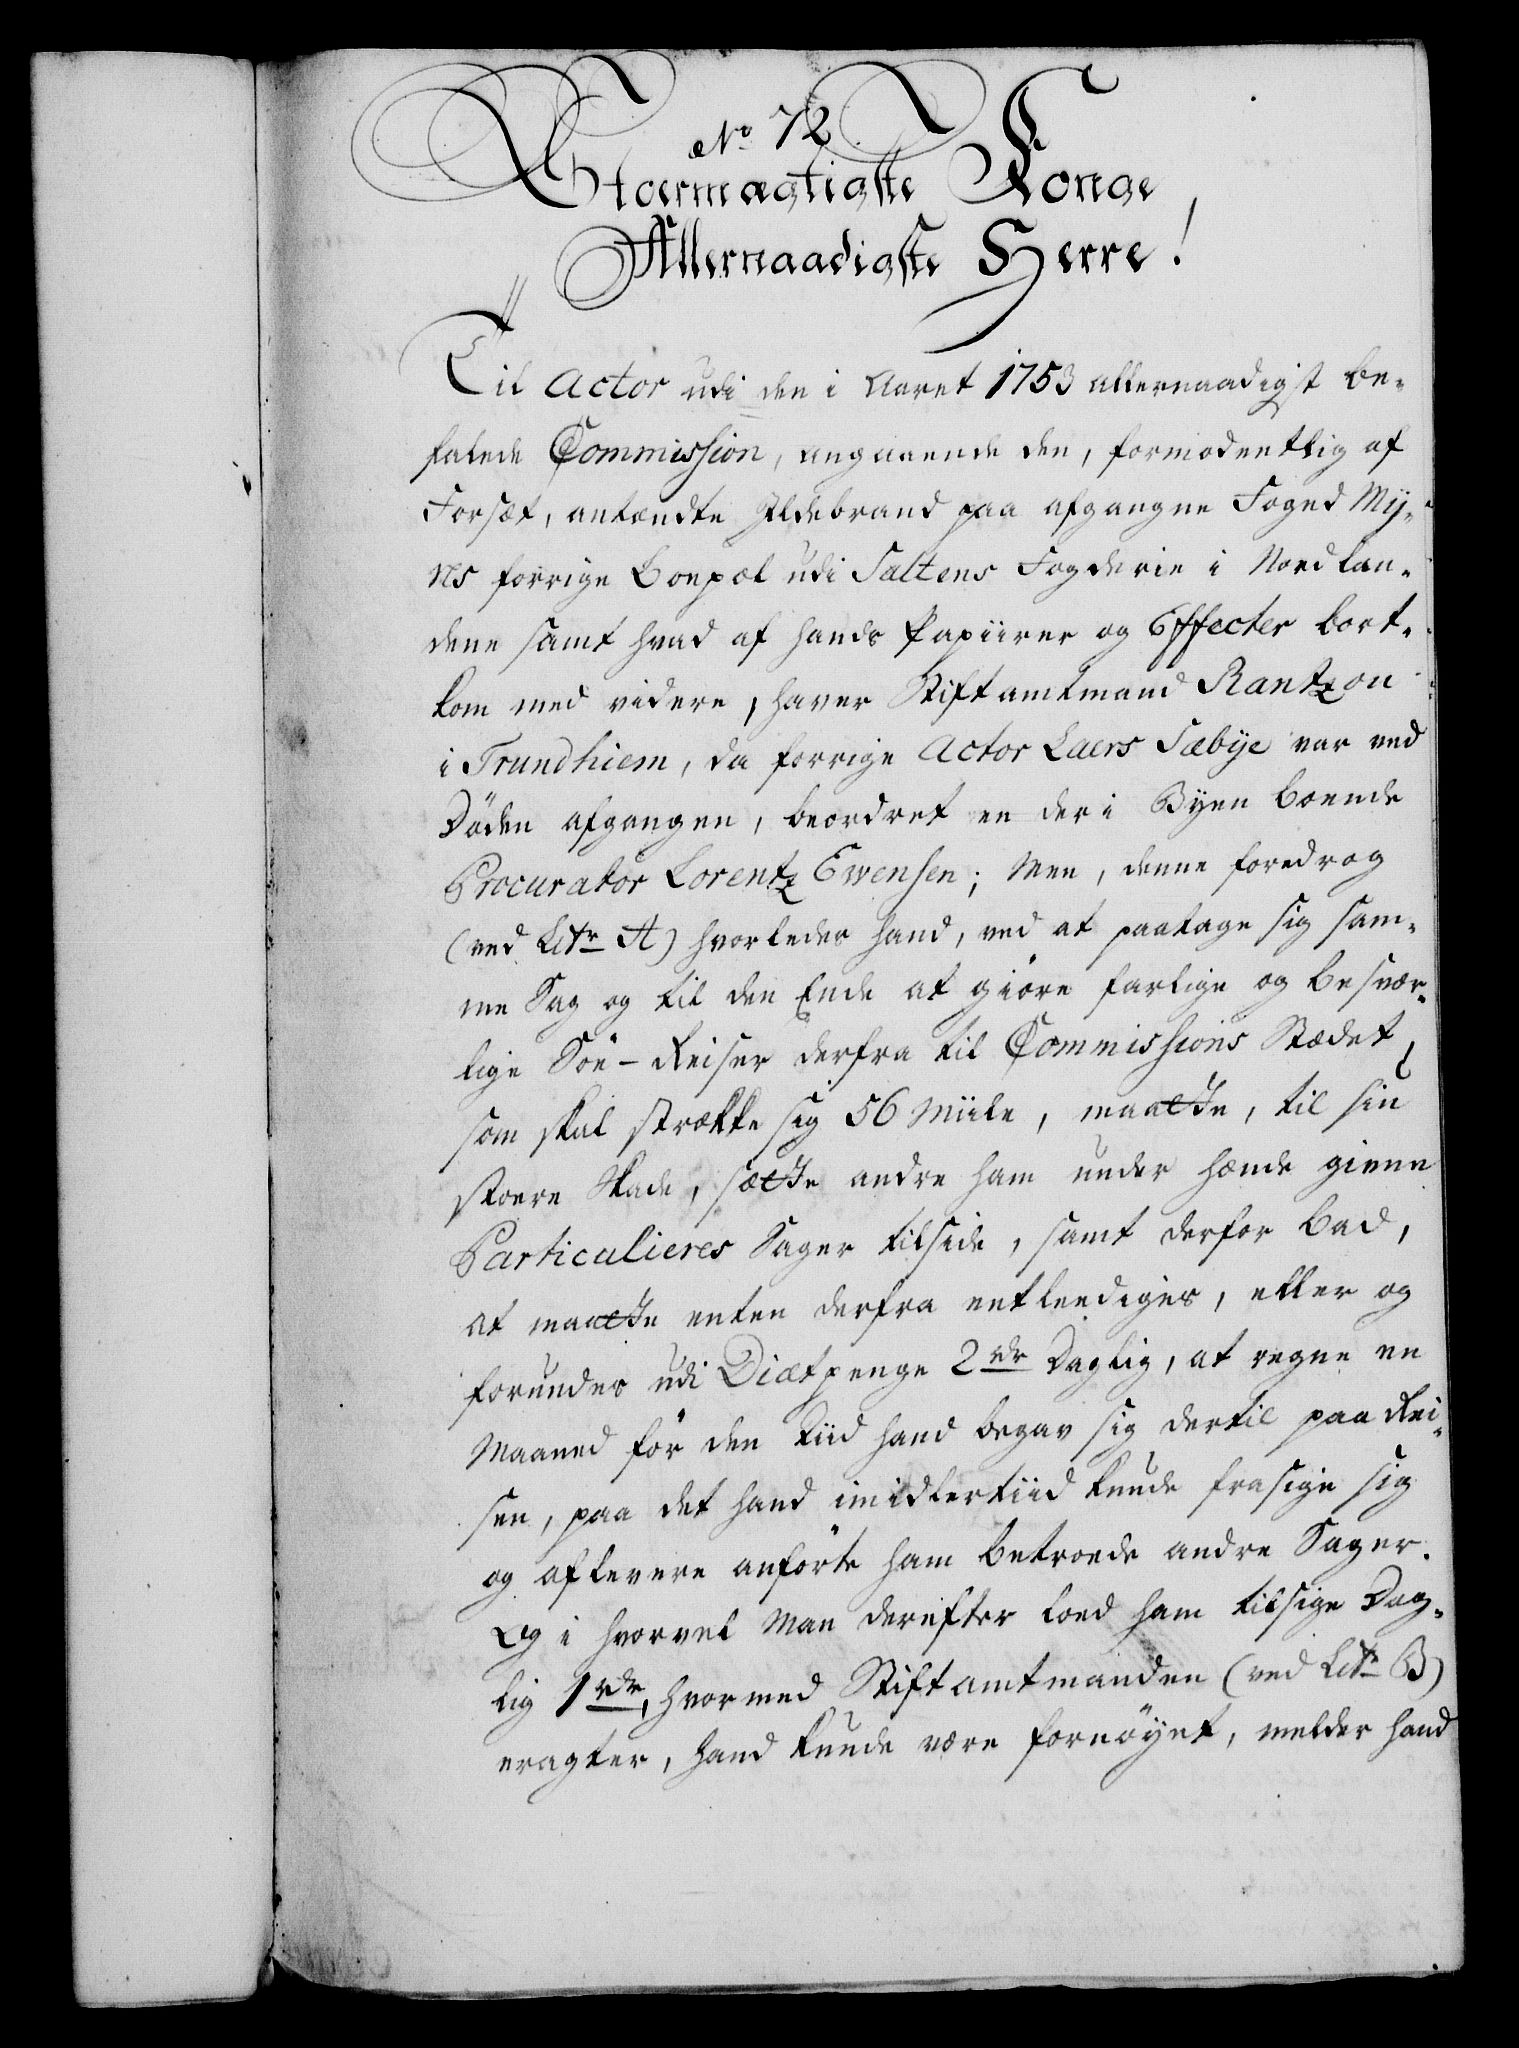 No 72
Stoermægtigste Konge
Allernaadigste Herre!
Til Actor udi den i Aaret 1753 allernaadigst be-
falede Commission, angaaende den, formodentlig af
Forsæt, antændte Ildebrand paa afgangne Foged My-
ns forrige Boepæl udi Saltens Fogderie i Nordlan-
dene samt hvad af hands Papiirer og Effecter bort-
kom med videre, haver Stiftamtmand Rantzou
i Trundhiem, da forrige Actor Laers Sæbye var ved
Döden afgangen, beordret en der i Byen boende
Procurator Lorentz Ewensen; Men, denne foredrog
(ved Litr A) hvorledes hand, ved at paatage sig sam-
me Sag og til den Ende at giöre farlige og besvær-
lige Söe-Reiser derfra til Commissions Stædet,
som skal strække sig 56 Miile, maatte, til sin
stoere Skade, sætte andre ham under hænde givne
Particulieres Sager tilside, samt derfor bad,
at maatte enten derfra entleediges, eller og
forundes udi Diætpenge 2 rdr Daglig, at regne en
Maaned för den Tiid hand begav sig dertil paa Rei-
sen, paa det hand imidlertiid kunde frasige sig
og aflevere anförte ham betroede andre Sager.
Og i hvorvel Man derefter loed ham tilsige Dag-
lig 1 rdr, hvormed Stiftamtmanden (ved Litr B)
eragter, hand kunde være fornöyet, melder hand